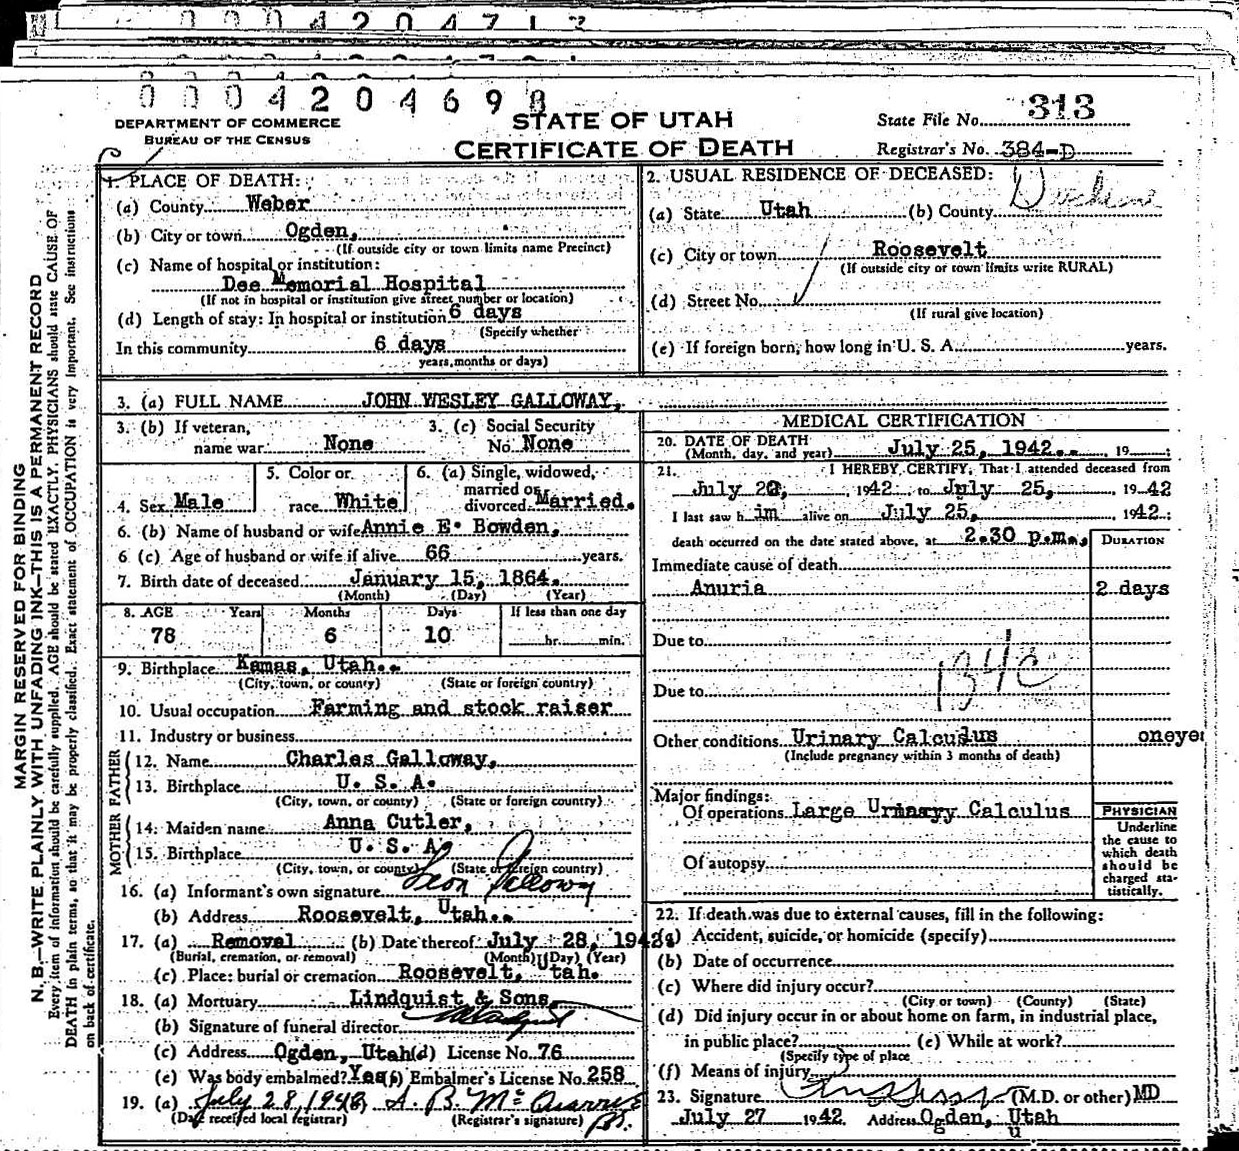 0004204698
STATE OF UTAH
CERTIFICATE OF DEATH
DEPARTMENT OF COMMERCE
BUREAU OF THE CENSUS
State File No. 313
Registrar's No. 384-D
MARGIN RESERVED FOR BINDING
N. B.—WRITE PLAINLY WITH UNFADING INK—THIS IS A PERMANENT RECORD
Every item of information should be carefully supplied. AGE should be stated EXACTLY. PHYSICIANS should state CAUSE OF
DEATH in plain terms, so that it may be properly classified. Exact statement of OCCUPATION is very important. See instructions
on back of certificate.
1. PLACE OF DEATH:
(a) County Weber
(b) City or town Ogden,
(If outside city or town limits name Precinct)
(c) Name of hospital or institution:
Dee Memorial Hospital
(If not in hospital or institution give street number or location)
(d) Length of stay: In hospital or institution 6 days
(Specify whether
In this community 6 days
years, months or days)
2. USUAL RESIDENCE OF DECEASED:
(a) State Utah (b) County Duchesne
(c) City or town Roosevelt
(If outside city or town limits write RURAL)
(d) Street No.
(If rural give location)
(e) If foreign born, how long in U. S. A. years.
3. (a) FULL NAME JOHN WESLEY GALLOWAY,
3. (b) If veteran, name war None
3. (c) Social Security No. None
4. Sex Male
5. Color or race White
6. (a) Single, widowed, married or divorced Married.
6. (b) Name of husband or wife Annie E. Bowden,
6 (c) Age of husband or wife if alive 66 years.
7. Birth date of deceased January 15, 1864.
(Month) (Day) (Year)
8. AGE Years Months Days If less than one day
78 6 10 hr. min.
9. Birthplace Kamas, Utah..
(City, town, or county) (State or foreign country)
10. Usual occupation Farming and stock raiser
11. Industry or business
FATHER
12. Name Charles Galloway,
13. Birthplace U. S. A.
(City, town, or county) (State or foreign country)
MOTHER
14. Maiden name Anna Cutler,
15. Birthplace U. S. A.
(City, town, or county) (State or foreign country)
16. (a) Informant's own signature Leon Galloway
(b) Address Roosevelt, Utah..
17. (a) Removal (b) Date thereof July 28, 1942.
(Burial, cremation, or removal) (Month) (Day) (Year)
(c) Place: burial or cremation Roosevelt, Utah.
18. (a) Mortuary Lindquist & Sons,
(b) Signature of funeral director
(c) Address Ogden, Utah (d) License No. 76
(e) Was body embalmed? Yes (f) Embalmer's License No. 258
19. (a) July 28, 1942 A. B. McQuarrie
(Date received local registrar) (Registrar's signature)
MEDICAL CERTIFICATION
20. DATE OF DEATH
(Month, day, and year) July 25, 1942.. 19
21. I HEREBY CERTIFY, That I attended deceased from
July 20, 1942, to July 25, 1942
I last saw h im alive on July 25, 1942;
death occurred on the date stated above, at 2.30 p.m.,
DURATION
Immediate cause of death
Anuria 2 days
Due to
134c
Due to
Other conditions Urinary Calculus oneyer
(Include pregnancy within 3 months of death)
Major findings:
Of operations Large Urinaryy Calculus
Of autopsy
PHYSICIAN
Underline
the cause to
which death
should be
charged sta-
tistically.
22. If death was due to external causes, fill in the following:
(a) Accident, suicide, or homicide (specify)
(b) Date of occurrence
(c) Where did injury occur?
(City or town) (County) (State)
(d) Did injury occur in or about home on farm, in industrial place,
in public place? (e) While at work?
(Specify type of place
(f) Means of injury
23. Signature (M.D. or other) MD
July 27 1942. Address Ogden, Utah